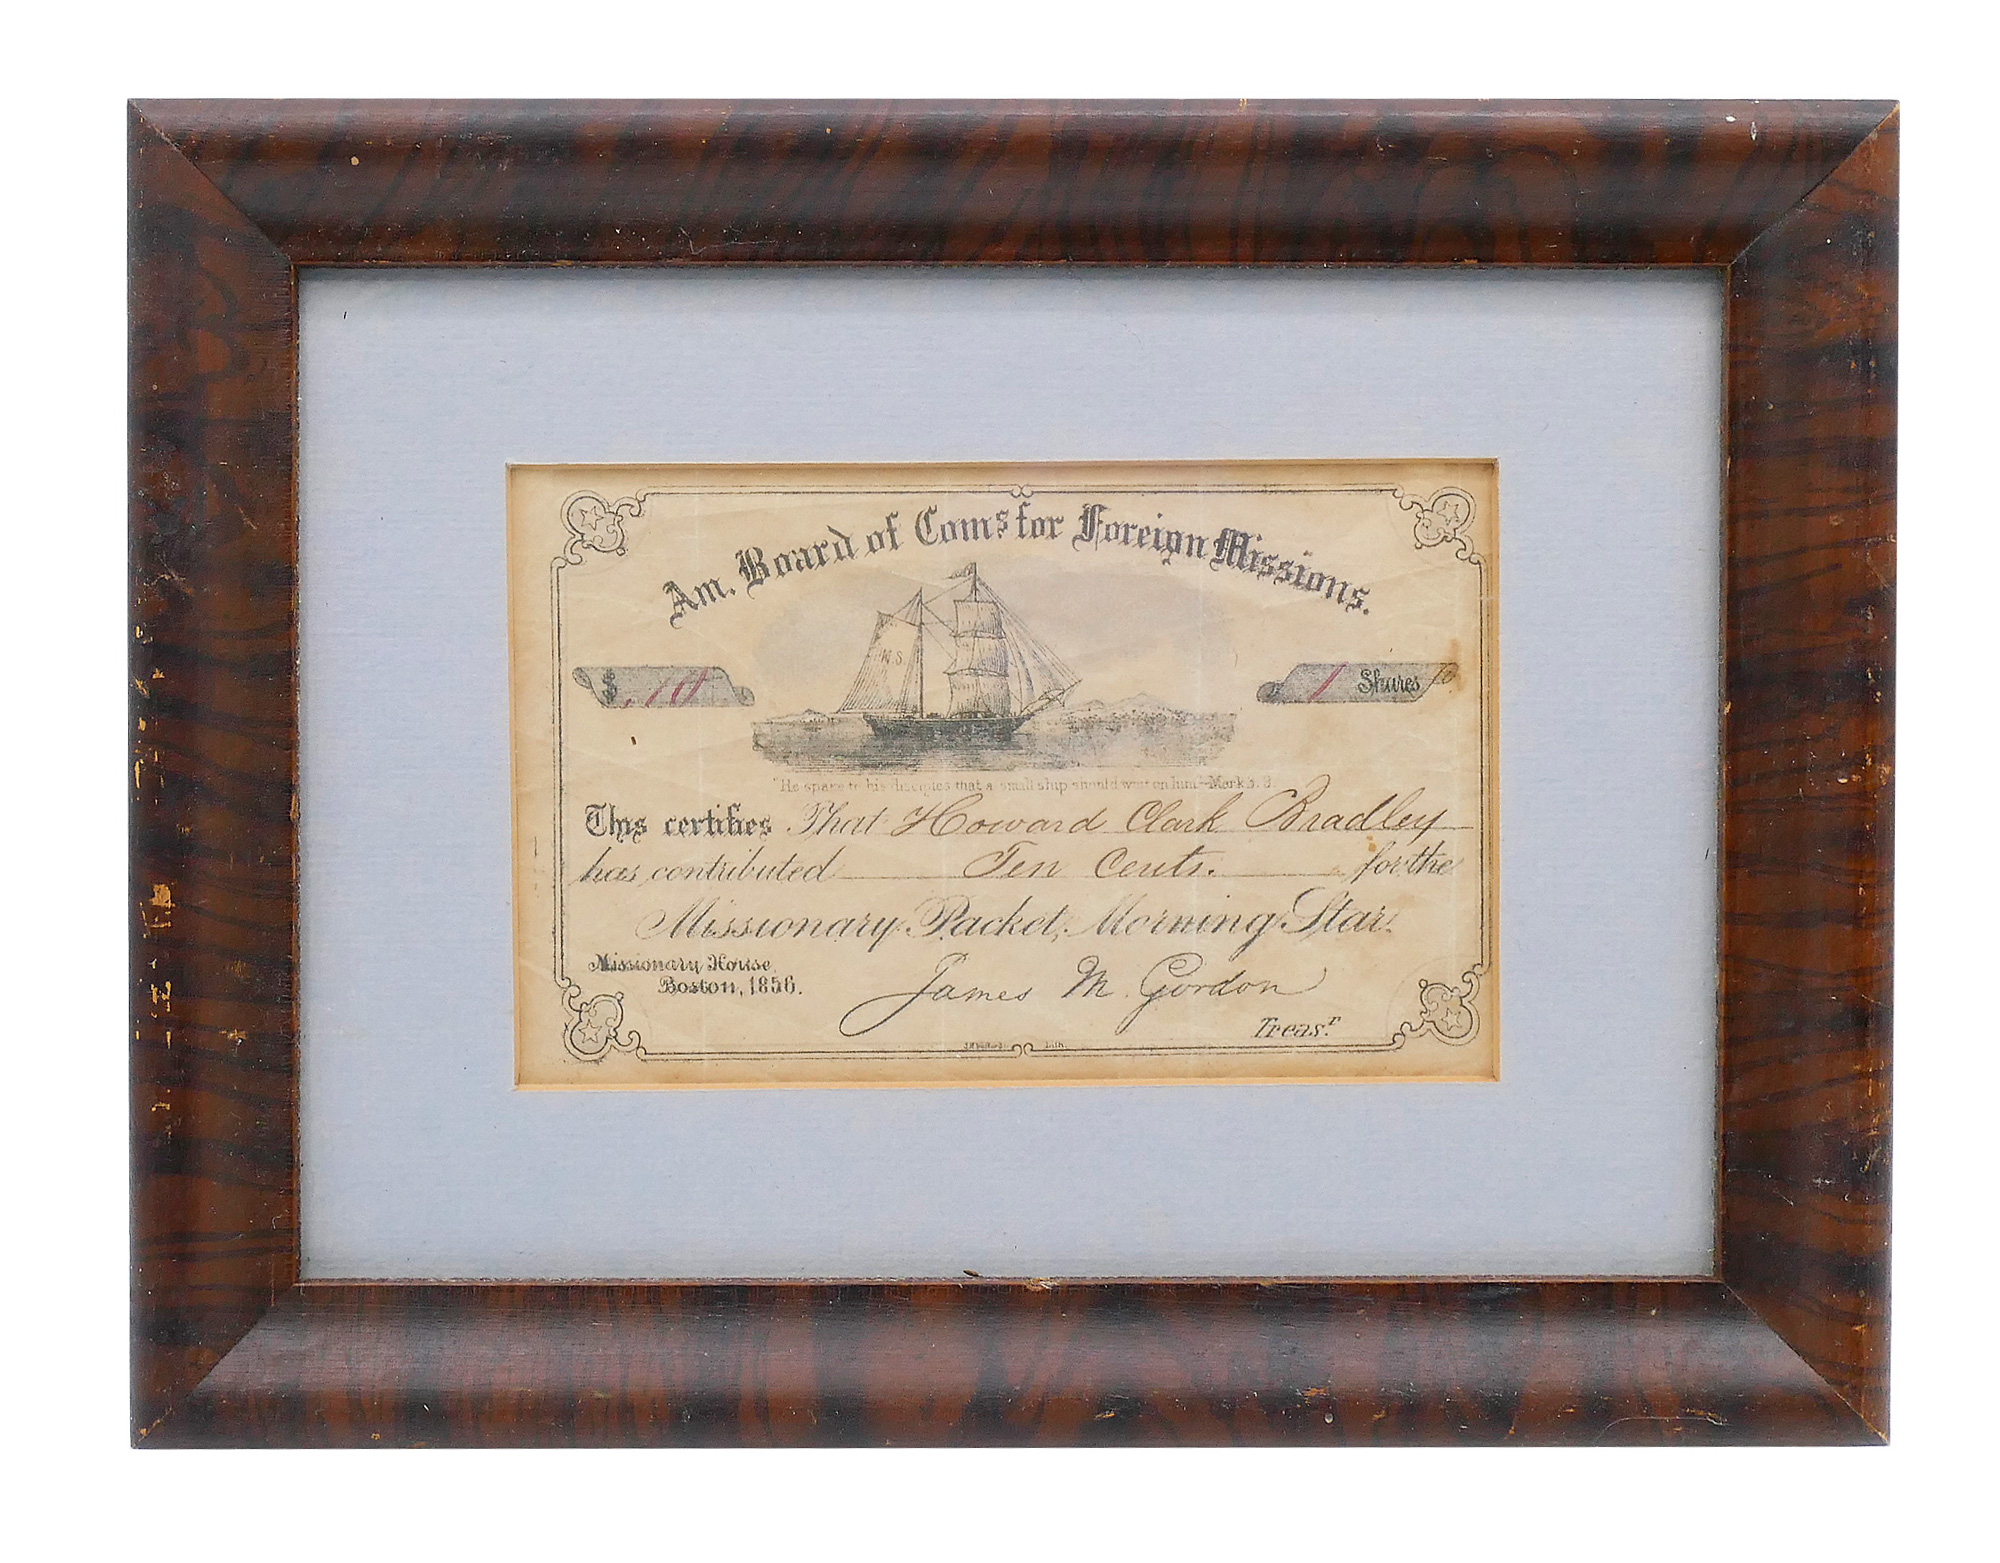 Am. Board of Coms for Foreign Missions.
M.S.
$ .10
1 Shares
"He spake to his disciples that a small ship should wait on him"—Mark 3. 9.
This certifies That Howard Clark Bradley
has contributed Ten Cents. for the
Missionary Packet, Morning Star.
Missionary House,
Boston, 1856.
James M. Gordon
Treas.r
Lith.